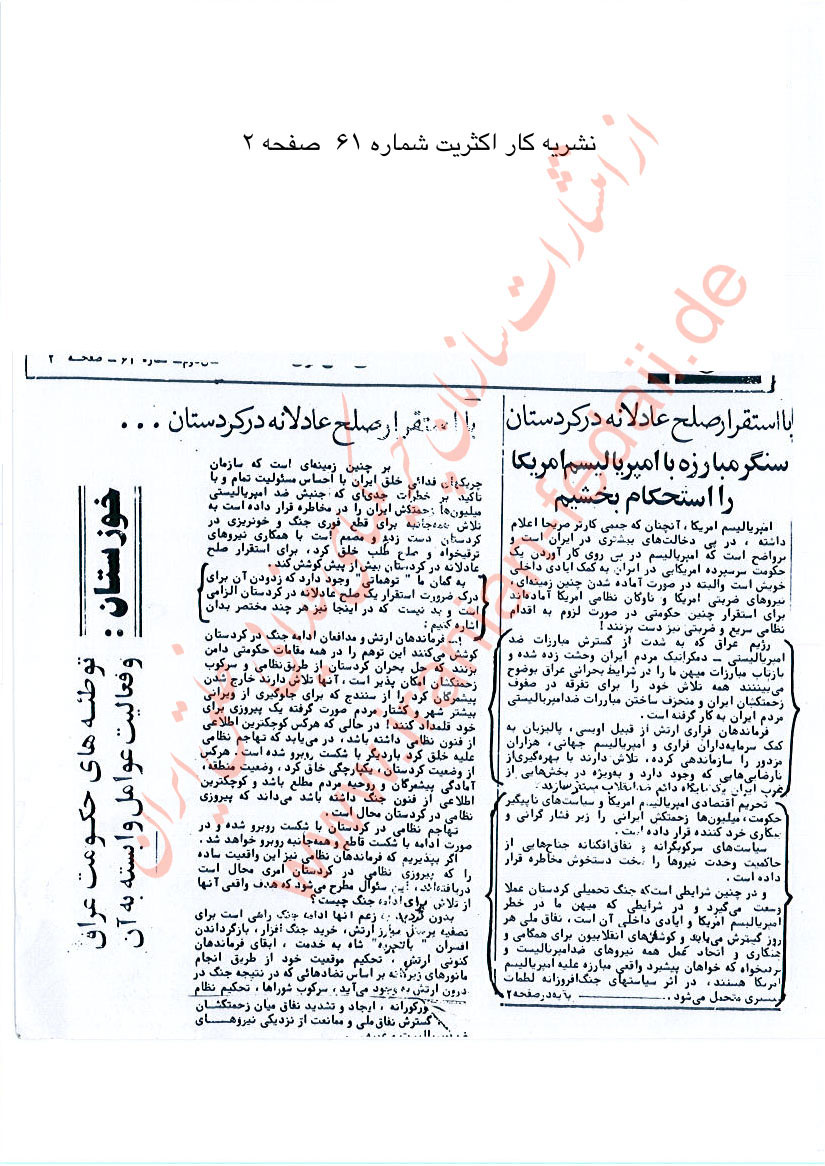 نشریه کار اکثریت شماره ۶۱ صفحه ۲
از انتشارات سازمان چریکهای فدائی خلق ایران
www.iranian-fedaii.de
شماره ۶۱ ــ صفحه ۲
با استقرار صلح عادلانه در کردستان
سنگر مبارزه با امپریالیسم امریکا
را استحکام بخشیم
امپریالیسم امریکا، آنچنان که جیمی کارتر صریحا اعلام
داشته، در پی دخالت‌های بیشتری در ایران است و
پرواضح است که امپریالیسم در پی روی کار آوردن یک
حکومت سرسپرده امریکایی در ایران به کمک ایادی داخلی
خویش است والبته در صورت آماده شدن چنین زمینه‌ای،
نیروهای ضربتی امریکا و ناوگان نظامی امریکا آماده‌اند
برای استقرار چنین حکومتی در صورت لزوم به اقدام
نظامی سریع و ضربتی نیز دست بزنند!
رژیم عراق که به شدت از گسترش مبارزات ضد
امپریالیستی ــ دمکراتیک مردم ایران وحشت زده شده و
بازتاب مبارزات میهن ما را در شرایط بحرانی عراق بوضوح
می‌بینند همه تلاش خود را برای تفرقه در صفوف
زحمتکشان ایران و منحرف ساختن مبارزات ضدامپریالیستی
مردم ایران به کار گرفته است.
فرماندهان فراری ارتش از قبیل اویسی، پالیزبان به
کمک سرمایه‌داران فراری و امپریالیسم جهانی، هزاران
مزدور را سازماندهی کرده، تلاش دارند با بهره‌گیری از
نارضایی‌هایی که وجود دارد و به‌ویژه در بخش‌هایی از
غرب ایران یک پایگاه دائم ضد انقلاب مستقر سازند.
تحریم اقتصادی امپریالیسم امریکا و سیاست‌های ناپیگیر
حکومت، میلیون‌ها زحمتکش ایرانی را زیر فشار گرانی و
بیکاری خرد کننده قرار داده است.
سیاست‌های سرکوبگرانه و نفاق‌افکنانه جناح‌هایی از
حاکمیت وحدت نیروها را سخت دستخوش مخاطره قرار
داده است.
و در چنین شرایطی است که جنگ تحمیلی کردستان عملا
وسعت می‌گیرد و در شرایطی که میهن ما در خطر
امپریالیسم امریکا و ایادی داخلی آن است، نفاق ملی هر
روز گسترش می‌یابد و کوشش‌های انقلابیون برای همگامی و
همکاری و اتحاد عمل همه نیروهای ضدامپریالیست و
ترقیخواه که خواهان پیشبرد واقعی مبارزه علیه امپریالیسم
امریکا هستند، در اثر سیاستهای جنگ‌افروزانه لطمات
بسیاری متحمل می‌شود.
بقیه در صفحه ۲
با استقرار صلح عادلانه در کردستان ...
بر چنین زمینه‌ای است که سازمان
چریکهای فدائی خلق ایران با احساس مسئولیت تمام و با
تاکید بر خطرات جدی‌ای که جنبش ضد امپریالیستی
میلیون‌ها زحمتکش ایران را در مخاطره قرار داده است به
تلاش همه‌جانبه برای قطع فوری جنگ و خونریزی در
کردستان دست زده و مصمم است با همکاری نیروهای
ترقیخواه و صلح طلب خلق کرد، برای استقرار صلح
عادلانه در کردستان بیش از پیش کوشش کند.
به گمان ما " توهماتی" وجود دارد که زدودن آن برای
درک ضرورت استقرار یک صلح عادلانه در کردستان الزامی
است و بد نیست که در اینجا نیز هر چند مختصر بدان
اشاره کنیم:
فرماندهان ارتش و مدافعان ادامه جنگ در کردستان
کوشش می‌کنند این توهم را در همه مقامات حکومتی دامن
بزنند که حل بحران کردستان از طریق نظامی و سرکوب
زحمتکشان امکان پذیر است، آنها تلاش دارند خارج شدن
پیشمرگان کرد را از سنندج که برای جلوگیری از ویرانی
بیشتر شهر و کشتار مردم صورت گرفته یک پیروزی برای
خود قلمداد کنند! در حالی که هرکس کوچکترین اطلاعی
از فنون نظامی داشته باشد، در می‌یابد که تهاجم نظامی
علیه خلق کرد باردیگر با شکست روبرو شده است. هرکس
از وضعیت کردستان، یکپارچگی خلق کرد، وضعیت منطقه،
آمادگی پیشمرگان و روحیه مردم مطلع باشد و کوچکترین
اطلاعی از فنون جنگ داشته باشد می‌داند که پیروزی
نظامی در کردستان محال است.
تهاجم نظامی در کردستان با شکست روبرو شده و در
صورت ادامه با شکست قاطع و همه‌جانبه روبرو خواهد شد.
اگر بپذیریم که فرماندهان نظامی نیز این واقعیت ساده
را که پیروزی نظامی در کردستان امری محال است
دریافته‌اند، این سئوال مطرح می‌شود که هدف واقعی آنها
از تلاش برای ادامه جنگ چیست؟
بدون تردید به زعم آنها ادامه جنگ راهی است برای
تصفیه پرسنل مبارز ارتش، خرید جنگ افزار، بازگرداندن
افسران " باتجربه" شاه به خدمت، ابقای فرماندهان
کنونی ارتش، تحکیم موقعیت خود از طریق انجام
مانورهای زیرکانه بر اساس تضادهائی که در نتیجه جنگ در
درون ارتش به وجود می‌آید، سرکوب شوراها، تحکیم نظام
کورکورانه، ایجاد و تشدید نفاق میان زحمتکشان
گسترش نفاق ملی و ممانعت از نزدیکی نیروهای
خوزستان:
توطئه های حکومت عراق
و فعالیت عوامل وابسته به آن